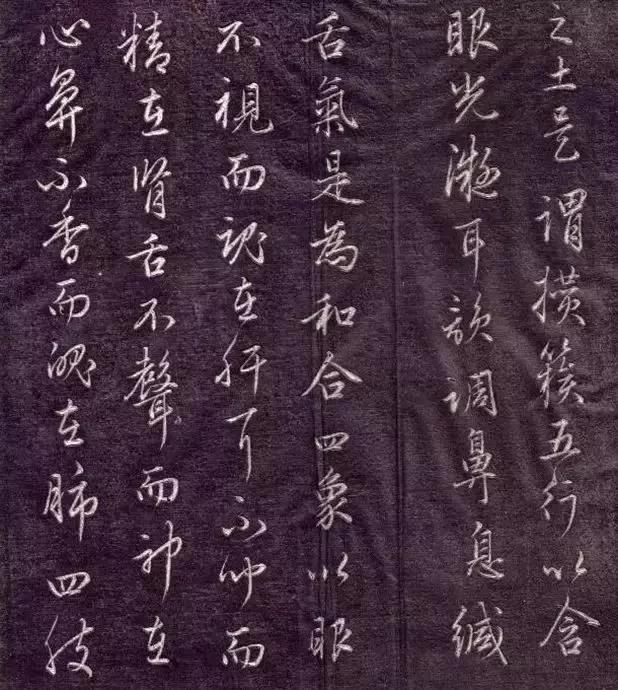 之土是謂攢簇五行以含
眼光凝耳韻调鼻息緘
舌氣是為和合四象以眼
不視而魂在肝耳不聞而
精在腎舌不聲而神在
心鼻不香而魄在肺四肢